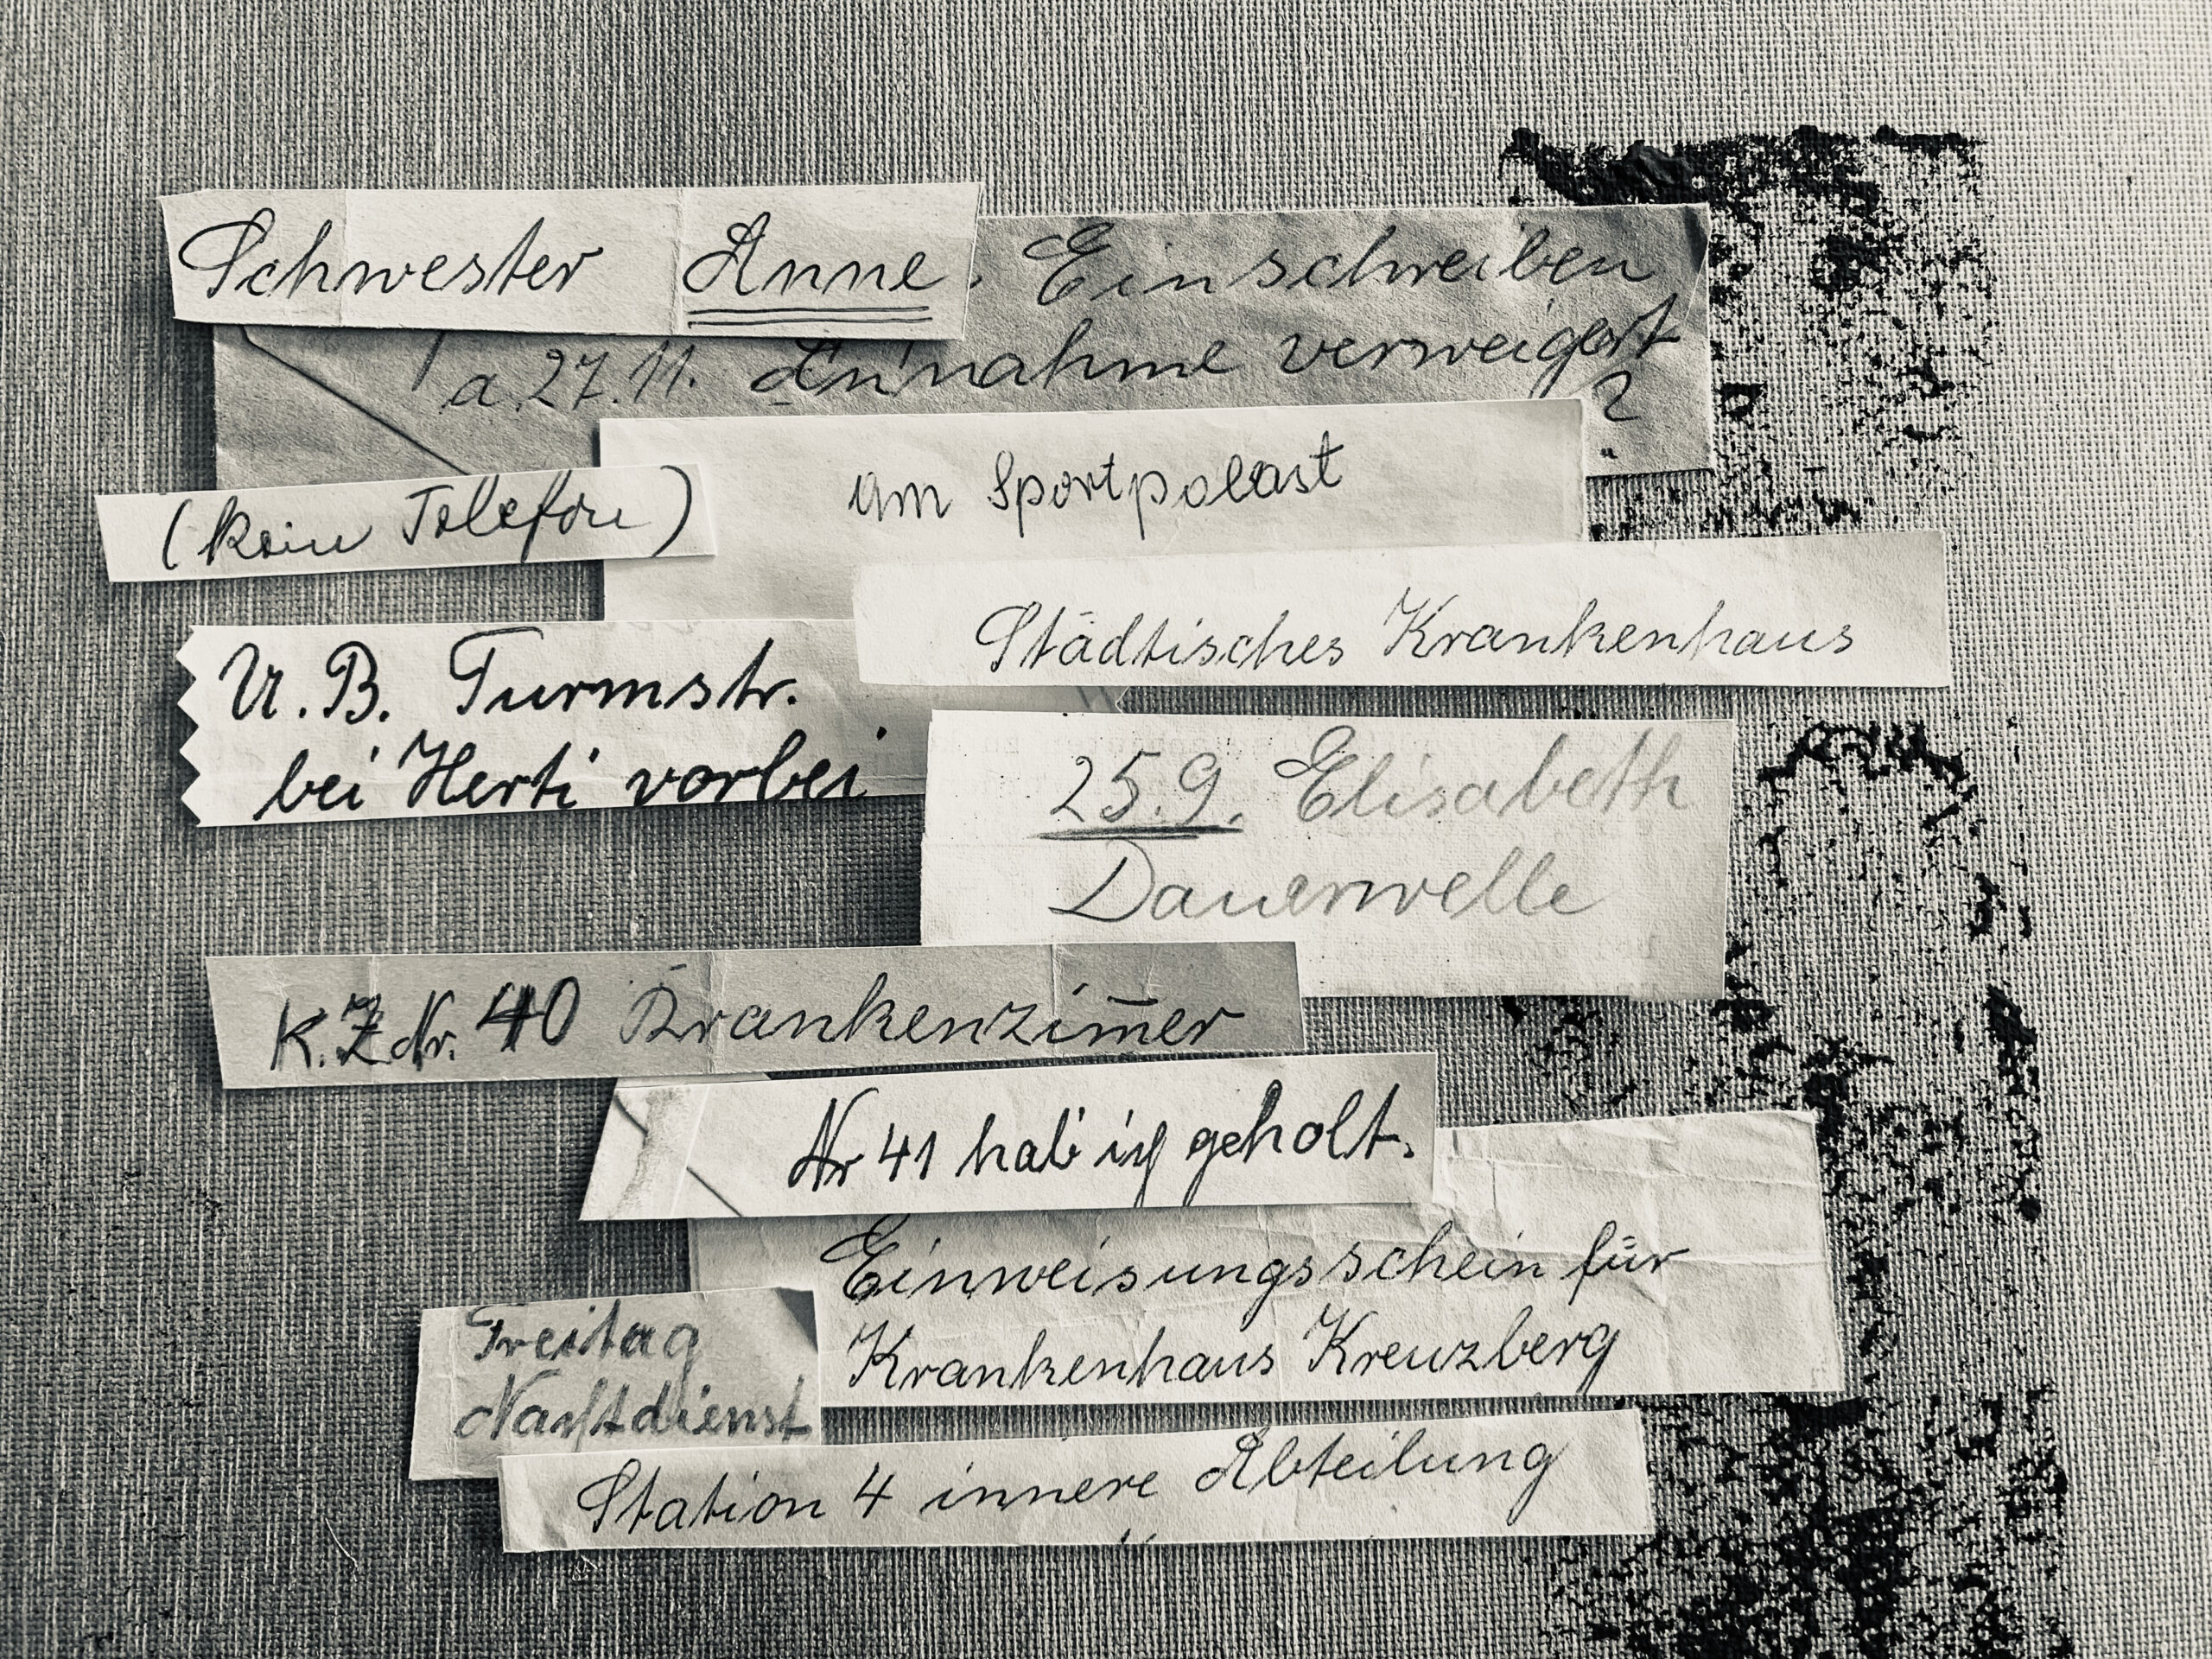 Schwester Anne. Einschreiben
a 27.11. Annahme verweigert
?
am Sportpalast
(kein Telefon)
Städtisches Krankenhaus
U.B. Turmstr.
bei Herti vorbei
25.9. Elisabeth
Dauerwelle
K.Z Nr. 40 Krankenzim̅er
Nr 41 hab' ich geholt.
Einweisungsschein für
Krankenhaus Kreuzberg
Freitag
Nachtdienst
Station 4 innere Abteilung